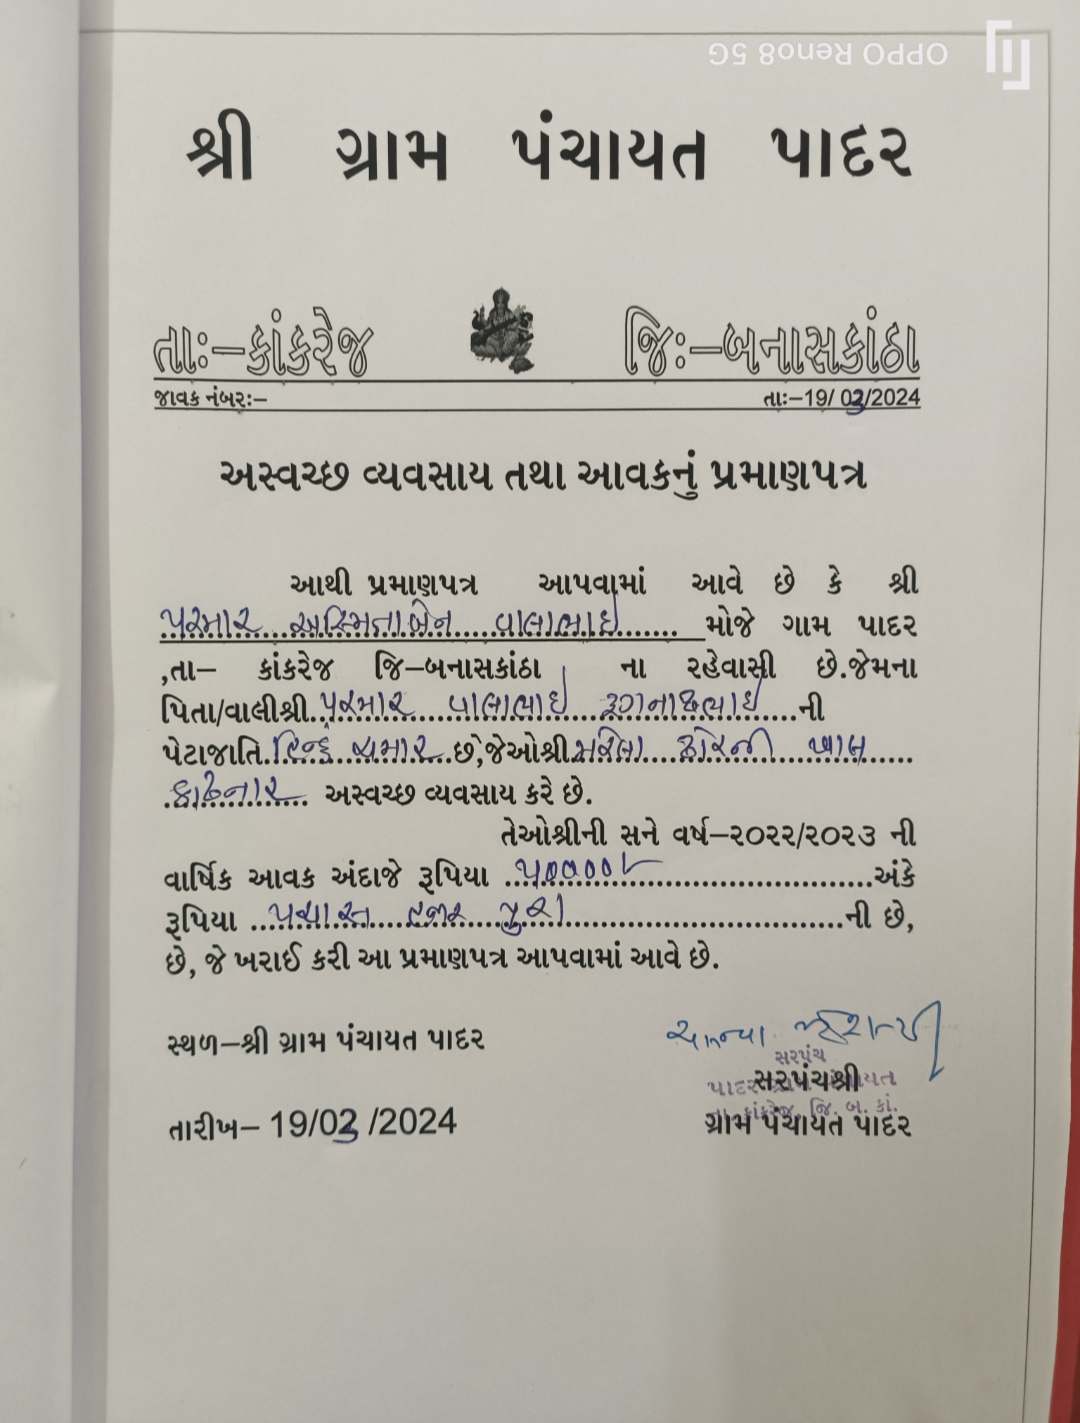 OPPO Reno8 5G
શ્રી ગ્રામ પંચાયત પાદર
તાઃ–કાંકરેજ જિઃ–બનાસકાંઠા
જાવક નંબરઃ– તાઃ–19/ 03/2024
અસ્વચ્છ વ્યવસાય તથા આવકનું પ્રમાણપત્ર
આથી પ્રમાણપત્ર આપવામાં આવે છે કે શ્રી
પરમાર અસ્મિતાબેન વાલાભાઇ મોજે ગામ પાદર
,તા– કાંકરેજ જિ–બનાસકાંઠા ના રહેવાસી છે.જેમના
પિતા/વાલીશ્રી..પરમાર વાલાભાઇ રૂગનાથભાઇ...ની
પેટાજાતિ.હિન્દુ ચમાર.છે,જેઓશ્રી.મરેલા ઢોરની ખાલ
કાઢનાર અસ્વચ્છ વ્યવસાય કરે છે.
તેઓશ્રીની સને વર્ષ–૨૦૨૨/૨૦૨૩ ની
વાર્ષિક આવક અંદાજે રૂપિયા ..૫૦૦૦૦/–..અંકે
રૂપિયા ..પચાસ હજાર પુરા..ની છે,
છે, જે ખરાઈ કરી આ પ્રમાણપત્ર આપવામાં આવે છે.
સ્થળ–શ્રી ગ્રામ પંચાયત પાદર
સરપંચ
સરપંચશ્રી
પાદર ગ્રામ પંચાયત
તા. કાંકરેજ, જિ. બ. કાં.
ગ્રામ પંચાયત પાદર
તારીખ– 19/03 /2024